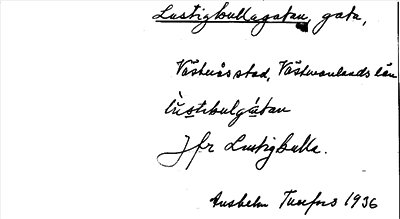 Lustigkullagatan, gata,
Västerås stad, Västmanlands län
lùstikulgátan
Jfr Lustigkulla.
Anshelm Tunfors 1936